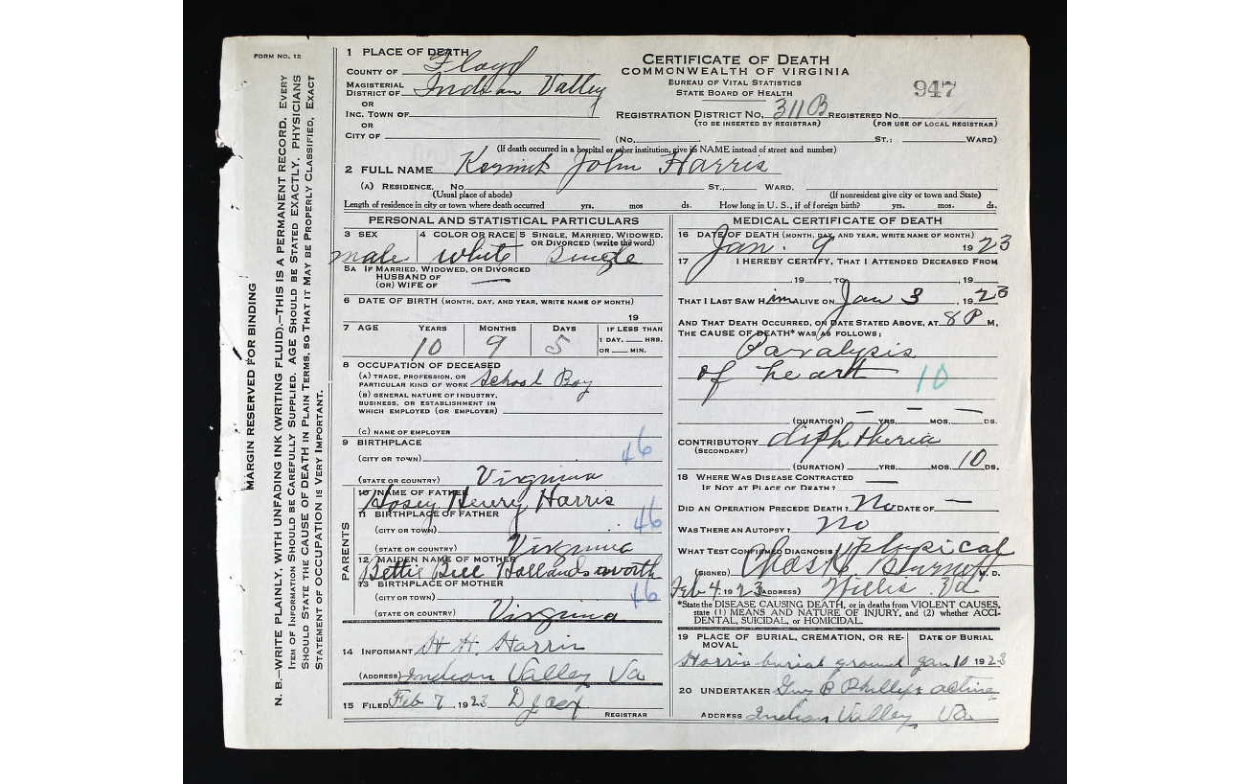 FORM NO. 12
MARGIN RESERVED FOR BINDING
N. B.—WRITE PLAINLY, WITH UNFADING INK (WRITING FLUID).—THIS IS A PERMANENT RECORD. EVERY
ITEM OF INFORMATION SHOULD BE CAREFULLY SUPPLIED. AGE SHOULD BE STATED EXACTLY. PHYSICIANS
SHOULD STATE THE CAUSE OF DEATH IN PLAIN TERMS, SO THAT IT MAY BE PROPERLY CLASSIFIED. EXACT
STATEMENT OF OCCUPATION IS VERY IMPORTANT.
1 PLACE OF DEATH
COUNTY OF Floyd
MAGISTERIAL
DISTRICT OF Indian Valley
OR
INC. TOWN OF
OR
CITY OF
CERTIFICATE OF DEATH
COMMONWEALTH OF VIRGINIA
BUREAU OF VITAL STATISTICS
STATE BOARD OF HEALTH
947
REGISTRATION DISTRICT NO. 311B REGISTERED NO.
(TO BE INSERTED BY REGISTRAR) (FOR USE OF LOCAL REGISTRAR)
(NO. ST.; WARD)
(If death occurred in a hospital or other institution, give its NAME instead of street and number)
2 FULL NAME Kermit John Harris
(A) RESIDENCE. No. ST., WARD.
(Usual place of abode) (If nonresident give city or town and State)
Length of residence in city or town where death occurred yrs. mos ds. How long in U. S., if of foreign birth? yrs. mos. ds.
PERSONAL AND STATISTICAL PARTICULARS
3 SEX
male
4 COLOR OR RACE
white
5 SINGLE, MARRIED, WIDOWED,
OR DIVORCED (write the word)
Single
5A IF MARRIED, WIDOWED, OR DIVORCED
HUSBAND OF
(OR) WIFE OF —
6 DATE OF BIRTH (MONTH, DAY, AND YEAR, WRITE NAME OF MONTH)
19
7 AGE YEARS MONTHS DAYS IF LESS THAN
1 DAY, HRS.
OR MIN.
10 9 5
8 OCCUPATION OF DECEASED
(A) TRADE, PROFESSION, OR
PARTICULAR KIND OF WORK School Boy
(B) GENERAL NATURE OF INDUSTRY,
BUSINESS, OR ESTABLISHMENT IN
WHICH EMPLOYED (OR EMPLOYER)
(C) NAME OF EMPLOYER
9 BIRTHPLACE
46
(CITY OR TOWN)
(STATE OR COUNTRY) Virginia
PARENTS
10 NAME OF FATHER
Hosey Henry Harris
11 BIRTHPLACE OF FATHER
(CITY OR TOWN) 46
(STATE OR COUNTRY) Virginia
12 MAIDEN NAME OF MOTHER
Bettie Bell Hollandsworth
13 BIRTHPLACE OF MOTHER
(CITY OR TOWN) 46
(STATE OR COUNTRY) Virginia
14 INFORMANT H H. Harris
(ADDRESS) Indian Valley Va
15 FILED Feb 7, 1923
REGISTRAR
MEDICAL CERTIFICATE OF DEATH
16 DATE OF DEATH (MONTH, DAY, AND YEAR, WRITE NAME OF MONTH)
Jan. 9 1923
17 I HEREBY CERTIFY, THAT I ATTENDED DECEASED FROM
, 19 , TO , 19
THAT I LAST SAW Him ALIVE ON Jan 3, 1923
AND THAT DEATH OCCURRED, ON DATE STATED ABOVE, AT 8 P M,
THE CAUSE OF DEATH* WAS AS FOLLOWS:
Paralysis
of heart 10
(DURATION) — YRS. — MOS. — DS.
CONTRIBUTORY diphtheria
(SECONDARY)
(DURATION) YRS. MOS. 10 DS.
18 WHERE WAS DISEASE CONTRACTED —
IF NOT AT PLACE OF DEATH?
DID AN OPERATION PRECEDE DEATH? No DATE OF —
WAS THERE AN AUTOPSY? No
WHAT TEST CONFIRMED DIAGNOSIS? physical
(SIGNED) M. D.
Feb 4, 1923 (ADDRESS) Willis Va
*State the DISEASE CAUSING DEATH, or in deaths from VIOLENT CAUSES,
state (1) MEANS AND NATURE OF INJURY, and (2) whether ACCI-
DENTAL, SUICIDAL, or HOMICIDAL.
19 PLACE OF BURIAL, CREMATION, OR RE-
MOVAL
DATE OF BURIAL
Harris burial ground Jan 10 1923
20 UNDERTAKER Guy P Phillips acting
ADDRESS Indian Valley Va